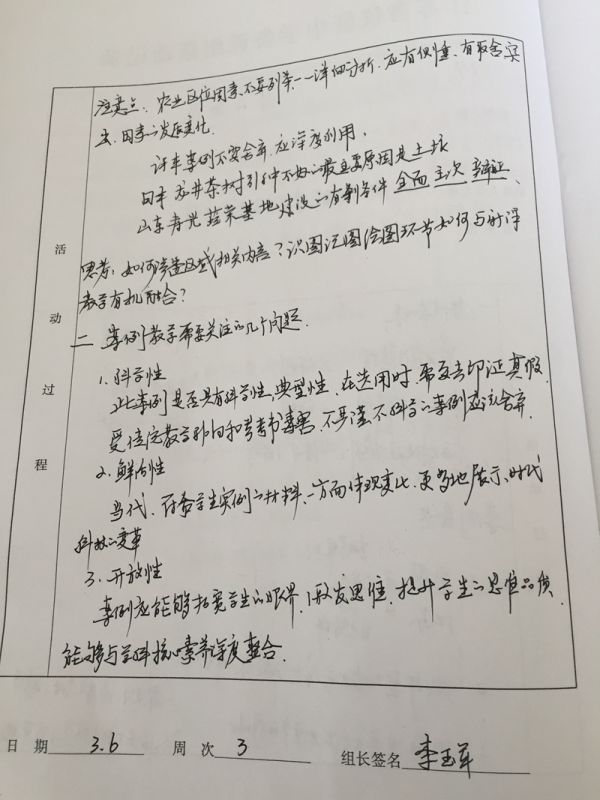 注意点：农业区位因素不要列举一一详细分析，应有侧重、有取舍突
出因素的发展变化.
许丰案例不要舍弃，应深度利用，
日本 龙井茶树引种不好的最主要原因是土壤
山东寿光蔬菜基地建设的有利条件 全面 主次 辩证.
思考：如何 区域相关内容？识图记图绘图环节如何与
教学有机融合？
二、案例教学需要关注的几个问题.
1. 科学性
此案例是否具有科学性、典型性，在选用时，需要去印证真假.
受传统教学 和 不严谨不科学的案例应该舍弃.
2. 鲜活性
当代、符合学生实例的材料、一方面体现变化，更多地展示时代
科技的变革
3. 开放性
案例应能够拓宽学生的眼界，激发思维，提升学生的思维品质，
能够与学科核心素养深度整合.
活动过程
日期 3.6 周次 3 组长签名 李玉军